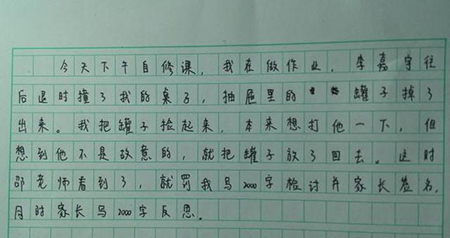 今天下午自修课，我在做作业，李嘉宇往
后退时撞了我的桌子，抽屉里的罐子掉了
出来。我把罐子捡起来，本来想打他一下，但
想到他不是故意的，就把罐子放了回去。这时
邵老师看到了，就罚我写2000字检讨并家长签名，
同时家长写2000字反思。